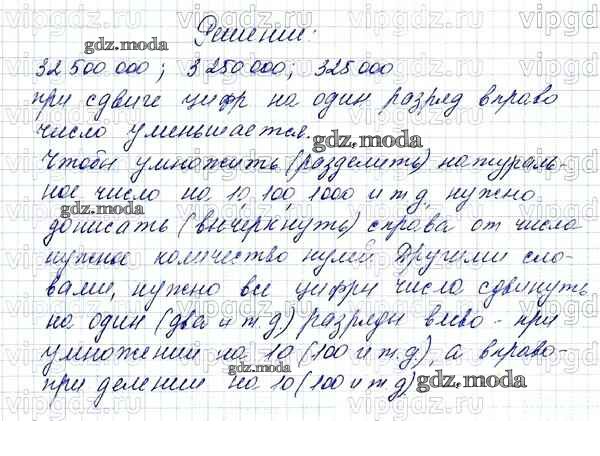 Решение:
32 500 000; 3 250 000; 325 000
при сдвиге цифр на один разряд вправо
число уменьшается.
Чтобы умножить (разделить) натураль-
ное число на 10, 100, 1000 и т д, нужно
дописать (вычеркнуть) справа от числа
нужное количество нулей. Другими сло-
вами, нужно все цифры числа сдвинуть
на один (два и т.д) разряды влево - при
умножении на 10 (100 и т.д), а вправо-
при делении на 10 (100 и т д)
gdz.moda
gdz.moda
gdz.moda
gdz.moda
gdz.moda
vipgdz.ru